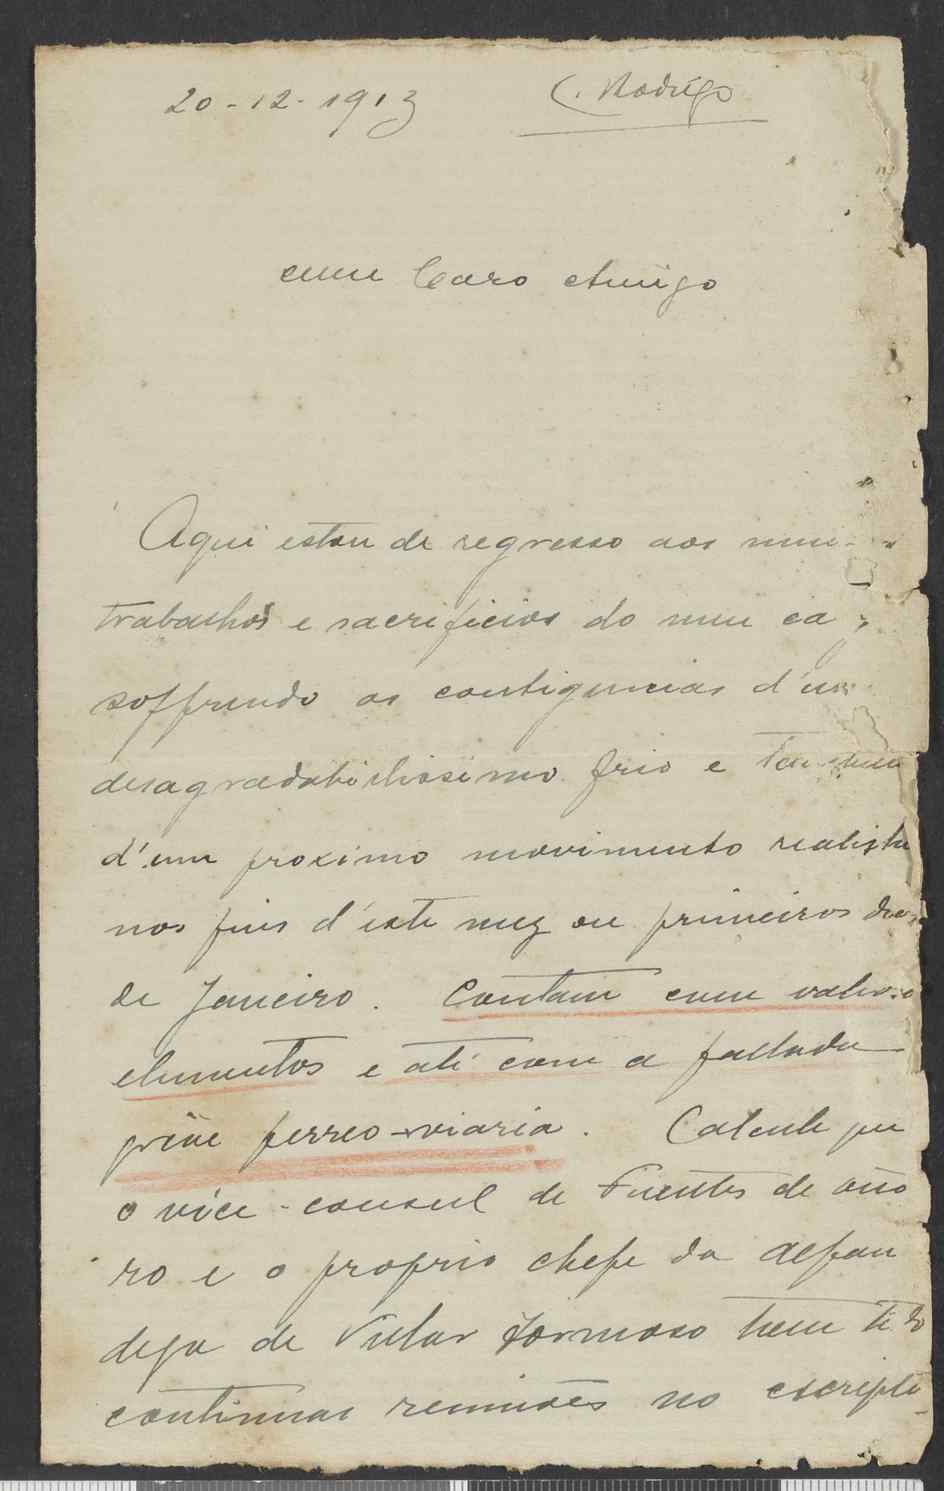 20-12-1913 C. Rodrigo
Meu Caro Amigo
Aqui estou de regresso aos meu
trabalhos e sacrificios do meu ca
soffrendo as contigencias d'um
desagradabilissimo frio e tambem
d'um proximo movimento realista
nos fins d'este mez ou primeiros dias
de Janeiro. Contam com valioso
elementos e até com a fallada
gréve ferreo-viaria. Calcule que
o vice-consul de Fuentes de Oño
ro e o proprio chefe da alfan
dega de Villar Formoso teem tido
continuas reuniões no escripto